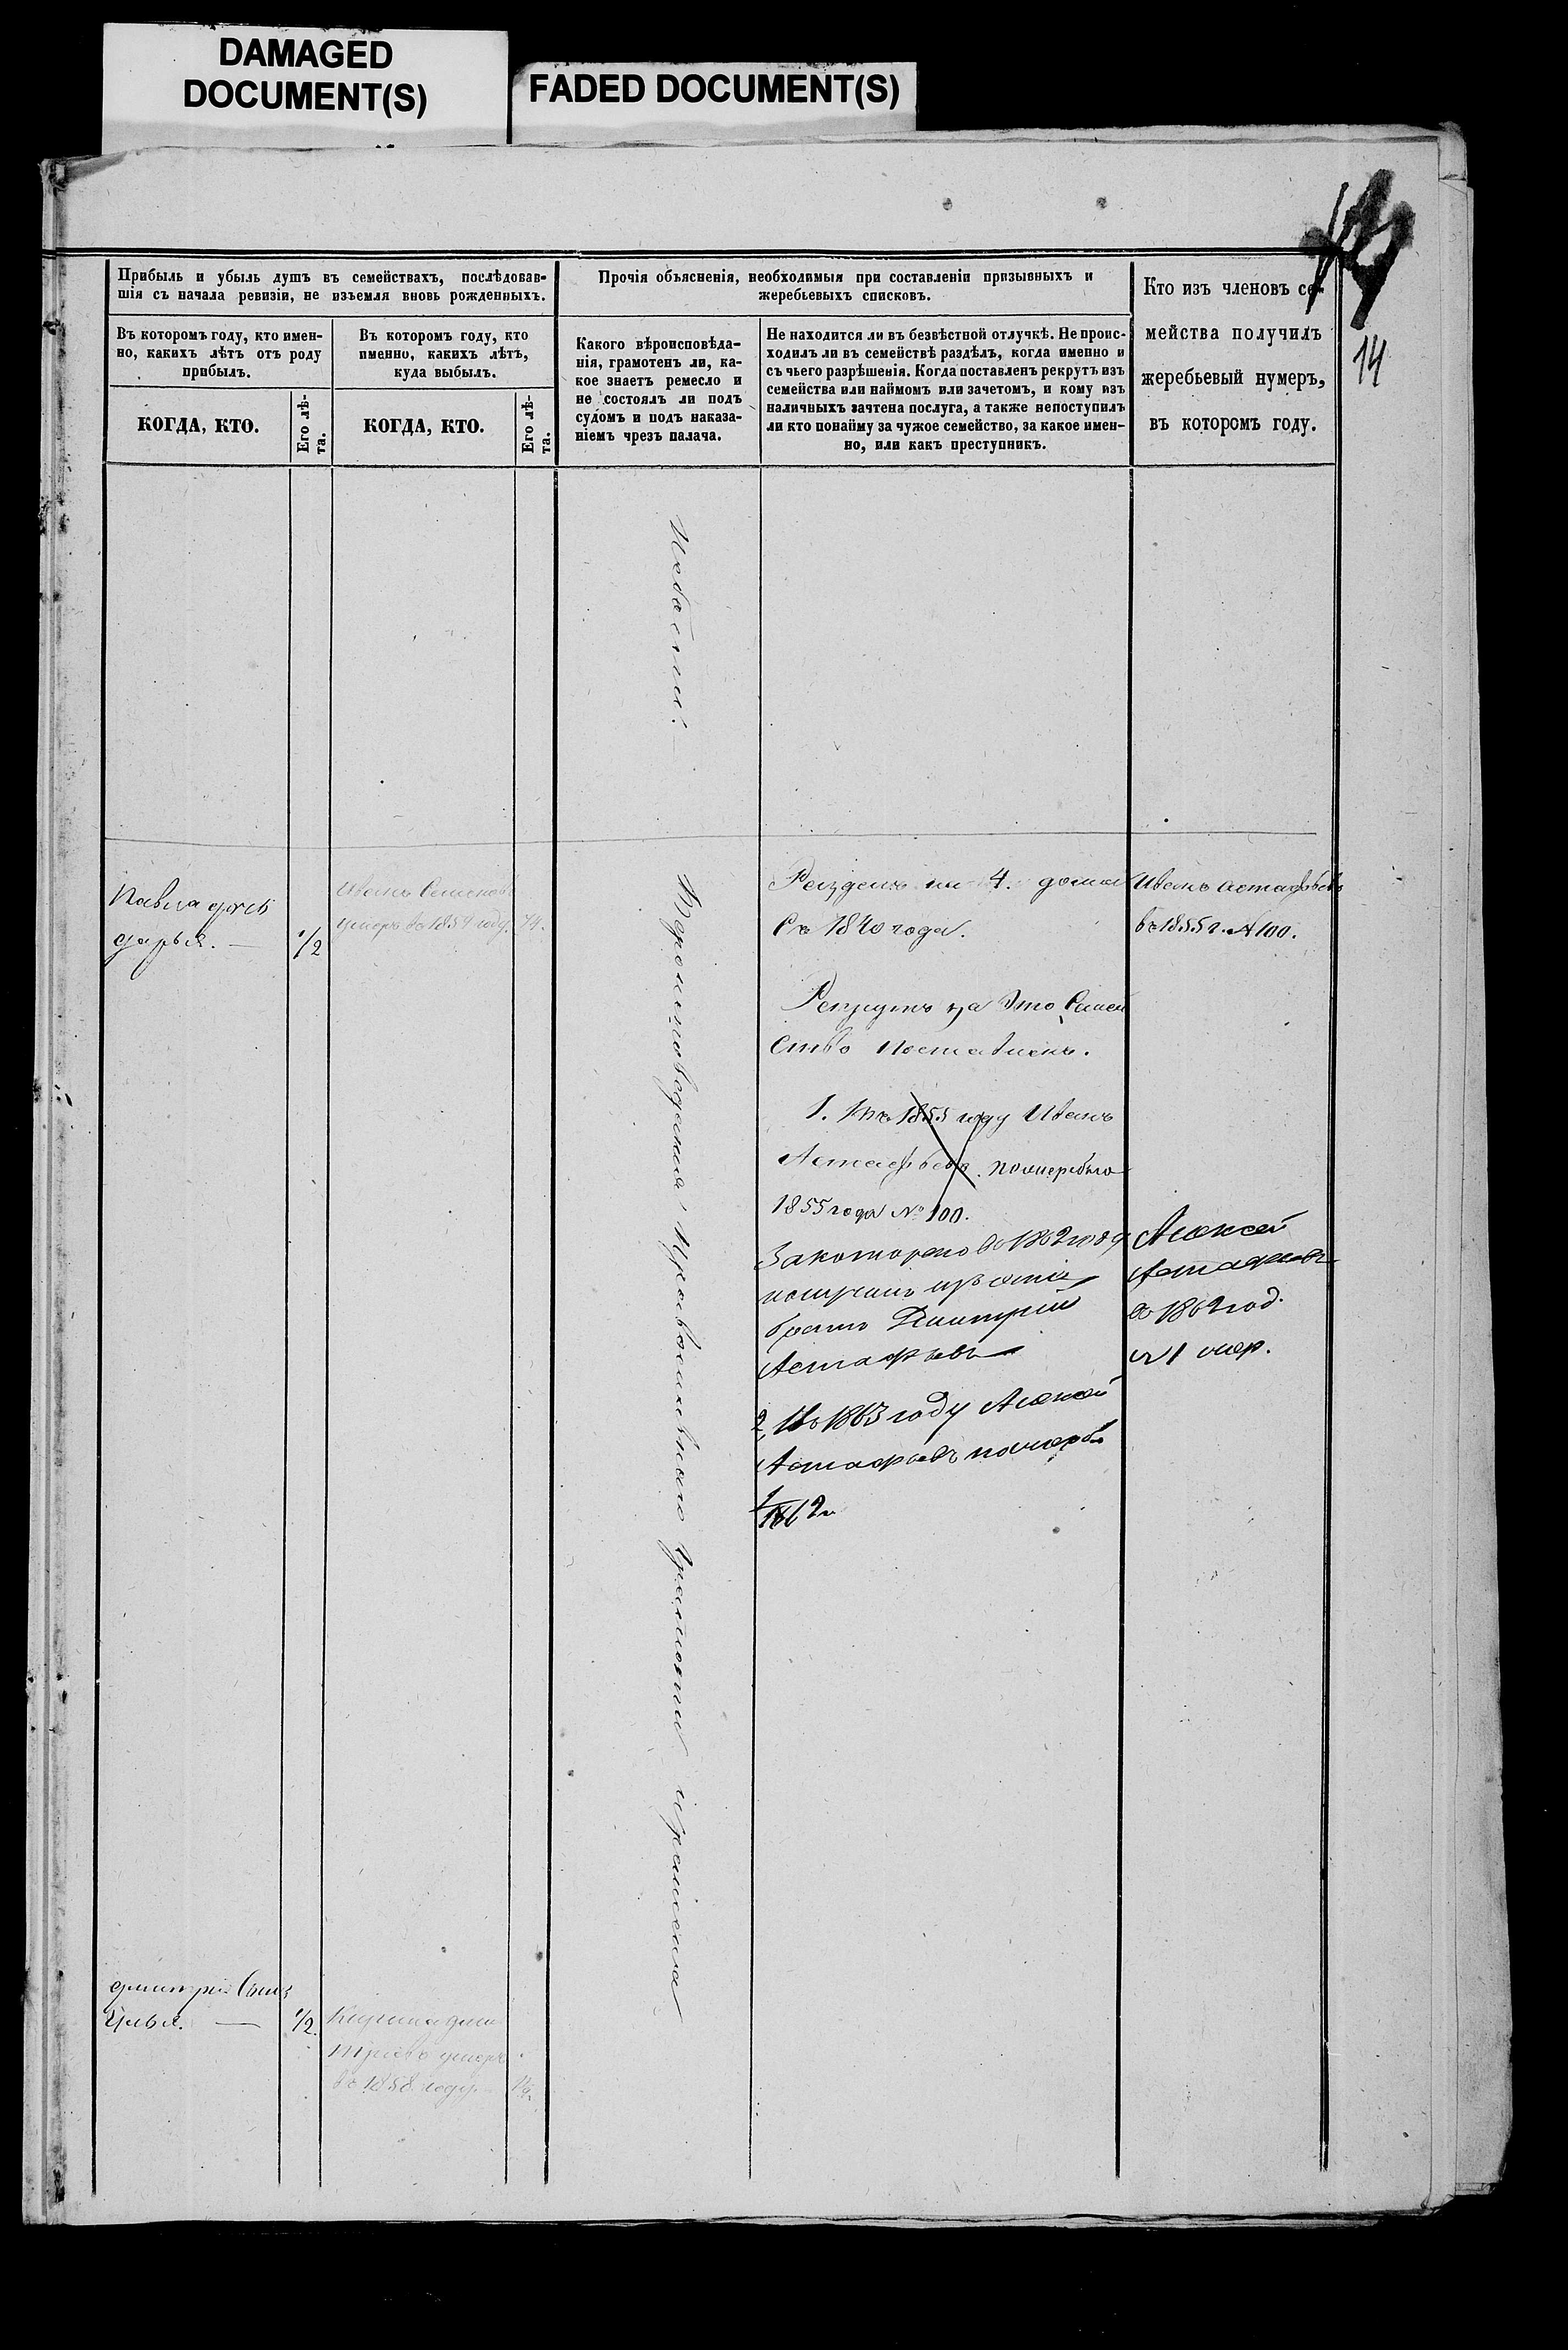 DAMAGED
DOCUMENT(S)
FADED DOCUMENT(S)
14
Прибыль и убыль душъ въ семействахъ, послѣдовав-
шія съ начала ревизіи, не изъемля вновь рожденныхъ.
Прочія объясненія, необходимыя при составленіи призывныхъ и
жеребьевыхъ списковъ.
Кто изъ членовъ се-
мейства получилъ
жеребьевый нумеръ,
въ которомъ году.
Въ которомъ году, кто имен-
но, какихъ лѣтъ отъ роду
прибылъ.
Въ которомъ году, кто
именно, какихъ лѣтъ,
куда выбылъ.
Какого вѣроисповѣда-
нія, грамотенъ ли, ка-
кое знаетъ ремесло и
не состоялъ ли подъ
судомъ и подъ наказа-
ніемъ чрезъ палача.
Не находится ли въ безвѣстной отлучкѣ. Не проис-
ходилъ ли въ семействѣ раздѣлъ, когда именно и
съ чьего разрѣшенія. Когда поставленъ рекрутъ изъ
семейства или наймомъ или зачетомъ, и кому изъ
наличныхъ зачтена послуга, а также непоступилъ
ли кто понайму за чужое семейство, за какое имен-
но, или какъ преступникъ.
КОГДА, КТО.
Его лѣ-
та.
КОГДА, КТО.
Его лѣ-
та.
Павла дочь
дарья. —
1/2
Иванъ Семеновъ
умеръ въ 1854 году. 74.
Вероисповедания, Православнаго Грамоты и ремесла
Разделъ на 4. дома
Съ 1840 года.
Рекрутъ за Это Семей
Ство Поставленъ.
1. Въ 1855 году Иванъ
Астафьевъ. Пожеребью
1855 года № 100.
За котораго въ 1862 году
братъ Дмитрий
Астафьевъ
2, Въ 1863 году Алексей
Астафьевъ пожеребью
1/1862 г
Иванъ Астафьевъ
въ 1855 г. № 100.
Алексей
Астафьевъ
въ 1862 год.
№ 1 жер.
дмитрия Сынъ
Илья. —
1/2.
дми
триевъ умеръ
въ 1858 году.